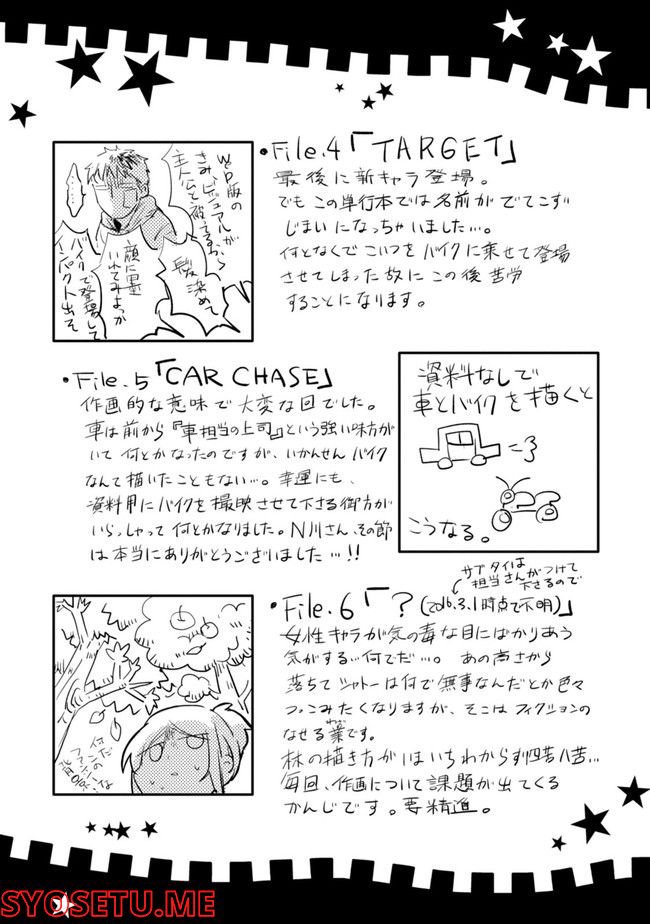 ・File.4「TARGET」
最後に新キャラ登場。
でも この単行本では名前が でてこず
じまいになっちゃいました…。
何となくで こいつを バイクに乗せて登場
させてしまった故に この後 苦労
することになります。
WEB版の
きみ、ビジュアルが
主人公と被ってるから
髪染めて
顔に墨
いれてみよっか
バイクで登場して
インパクト出そ
……
・File.5「CAR CHASE」
作画的な意味で大変な回でした。
車は前から『車担当の上司』という強い味方が
いて 何とかなったのですが、いかんせん バイク
なんて描いたこともない…。幸運にも、
資料用にバイクを撮映させて下さる御方が
いらっしゃって 何とかなりました。N川さん、その節
は本当にありがとうございました…!!
資料なしで
車とバイクを描くと
こうなる。
・File.6「?(2016.3.1時点で不明)」
サブタイは
担当さんがつけて
下さるので
女性キャラが気の毒な目にばかりあう
気がする…何でだ…。 あの高さから
落ちて シャトーは何で無事なんだとか色々
つっこみたくなりますが、そこはフィクションの
なせる業です。
わざ
林の描き方がいまいちわからず四苦八苦…
毎回、作画について課題が出てくる
かんじです。要精進。
何だ
この
ファンシーな
SYOSETU.ME